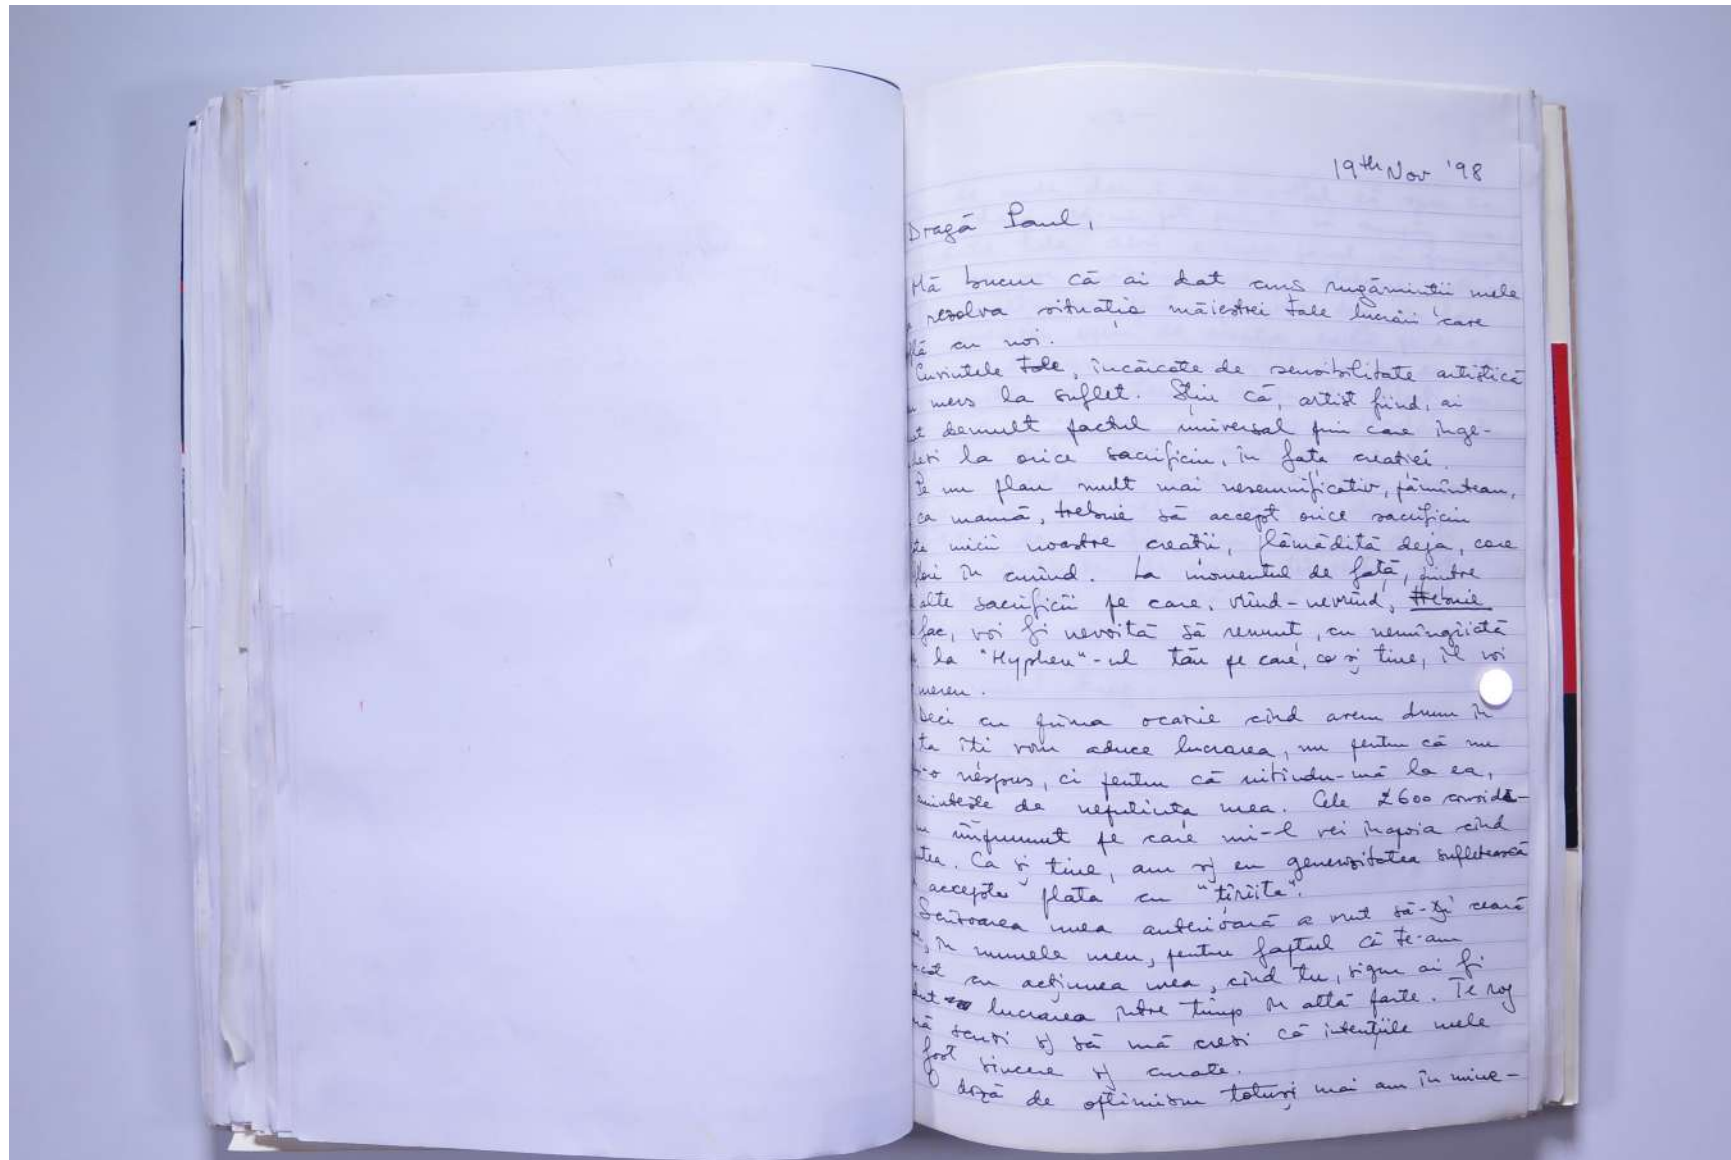 19th Nov '98
Dragă Paul,
Mă bucur că ai dat curs rugăminții mele
rezolva situația măiestrei tale lucrări care
flă cu noi.
Cuvintele tale, încărcate de sensibilitate artistică
mers la suflet. Știu că, artist fiind, ai
demult pactul universal prin care înge-
la orice sacrificiu, în fața creației.
Pe un plan mult mai nesemnificativ, pămîntean,
ca mamă, trebuie să accept orice sacrificiu
micii noastre creații, plămădită deja, care
în curînd. La momentul de față, printre
alte sacrificii pe care, vrînd-nevrînd, trebuie
fac, voi fi nevoită să renunț, cu nemîngîiată
la "Hyphen"-ul tău pe care, ca și tine, îl voi
mereu.
Deci cu prima ocazie cînd avem drum în
ta îți vom aduce lucrarea, nu pentru că nu
nespus, ci pentru că uitîndu-mă la ea,
amintește de neputința mea. Cele £600 consideră-
împrumut pe care mi-l vei înapoia cînd
putea. Ca și tine, am și eu generozitatea sufletească
accepta plata cu "țîrîita".
Scrisoarea mea anterioară a vrut să-ți ceară
în numele meu, pentru faptul că te-am
cu acțiunea mea, cînd tu, sigur ai fi
lucrarea între timp în altă parte. Te rog
scuzi și să mă crezi că intențiile mele
fost sincere și curate.
O doză de optimism totuși mai am în mine-